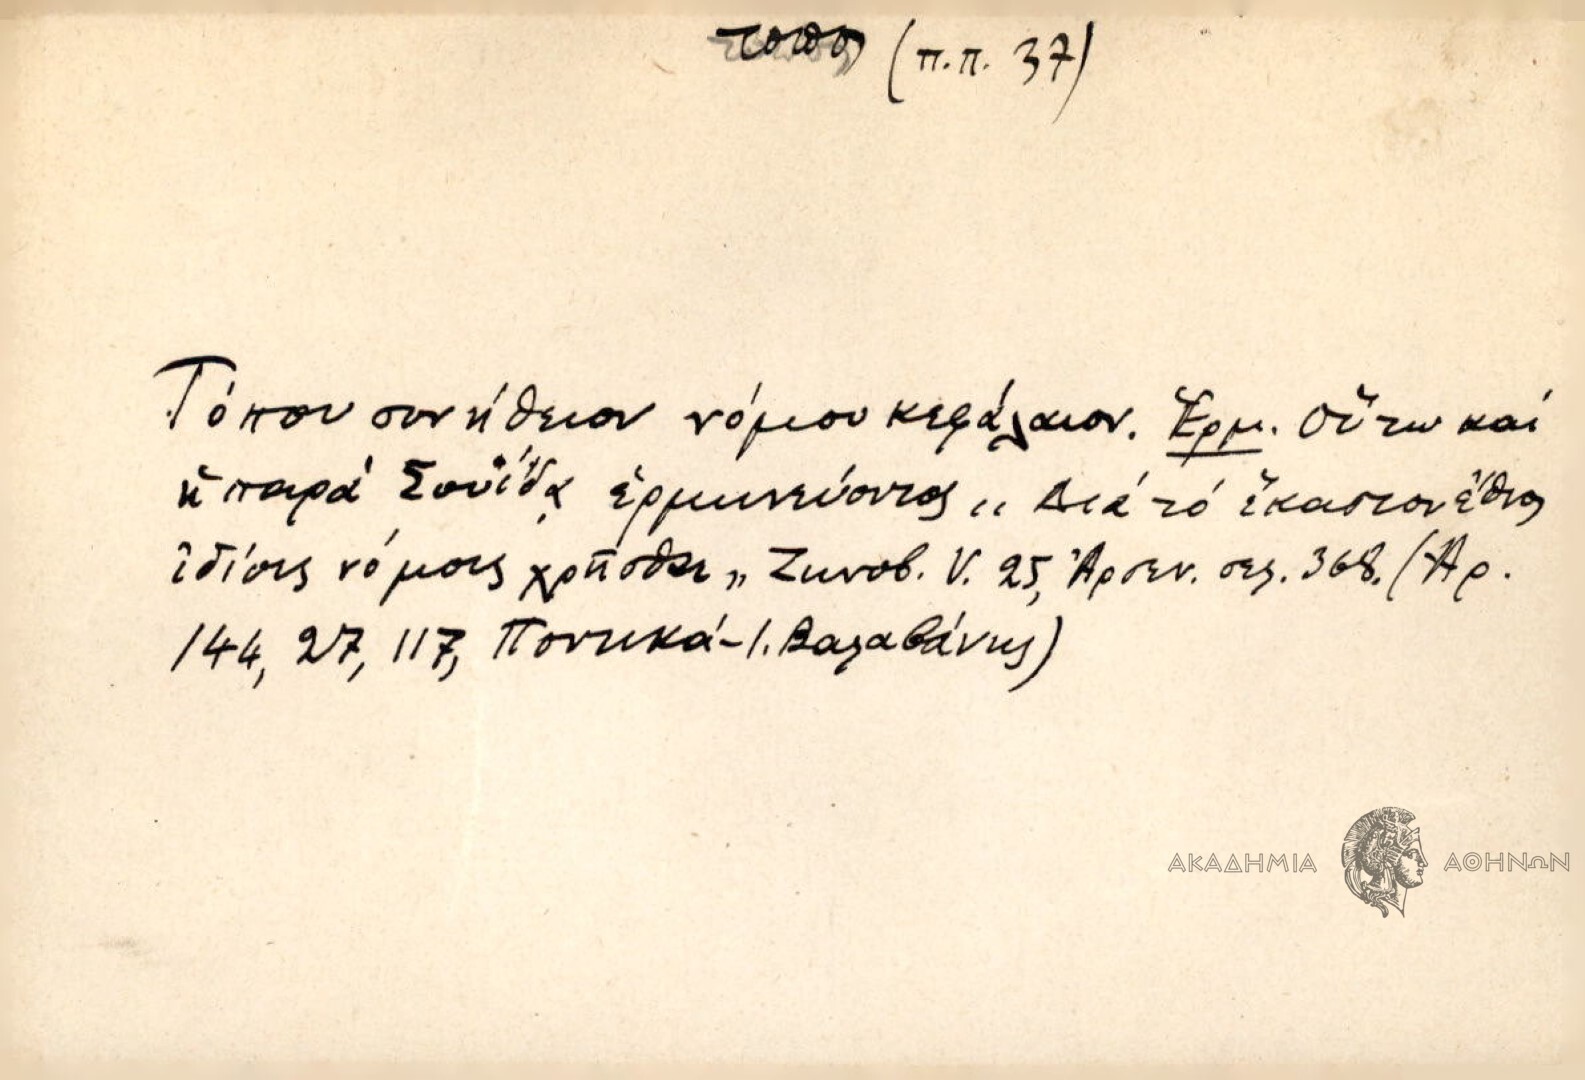 τόπος (π.π. 37)
Τόπου συνήθειον νόμου κεφάλαιον. Ἑρμ. Οὕτω καί
ἡ παρά Σουΐδᾳ ἑρμηνεύοντος „ Διά τό ἕκαστον ἔθνος
ἰδίοις νόμοις χρῆσθαι „ Ζηνοβ. V. 25, Ἀρσεν. σελ. 368. (Ἀρ.
144, 27, 117, Ποντικά - Ι. Βαλαβάνης)
ΑΚΑΔΗΜΙΑ ΑΘΗΝΩΝ